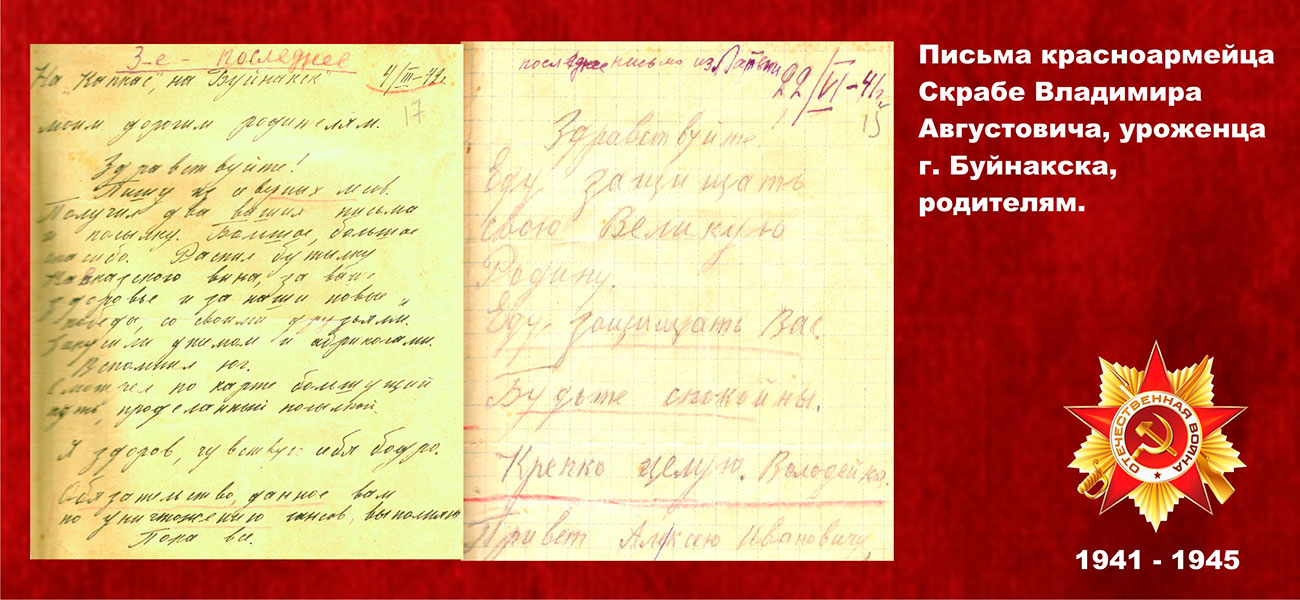 3-е - последнее
На "Кавказ", на Буйнакск"
4/III-42г.
17
моим дорогим родителям.
Здравствуйте!
Пишу из северных лесов.
Получил два ваших письма
и посылку. Большое, большое
спасибо. Распил бутылку
Кавказского вина, за ваше
здоровье и за наши новые
победы, со своими друзьями.
Закусили джемом и абрикосами.
Вспомнил юг.
Смотрел по карте большущий
путь, проделанный посылкой.
Я здоров, чувствую себя бодро.
Обязательство, данное вам
по уничтожению гансов, выполняю
Пока все.
последнее письмо из Латвии
22/VI-41г.
15
Здравствуйте.
Еду защищать
свою Великую
Родину.
Еду защищать Вас.
Будьте спокойны.
Крепко целую. Володейка.
Привет Алексею Ивановичу,
Письма красноармейца
Скрабе Владимира
Августовича, уроженца
г. Буйнакска,
родителям.
ОТЕЧЕСТВЕННАЯ ВОЙНА
1941 - 1945